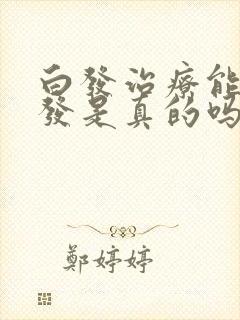 白發治療能
發是真的吗
鄭婷婷